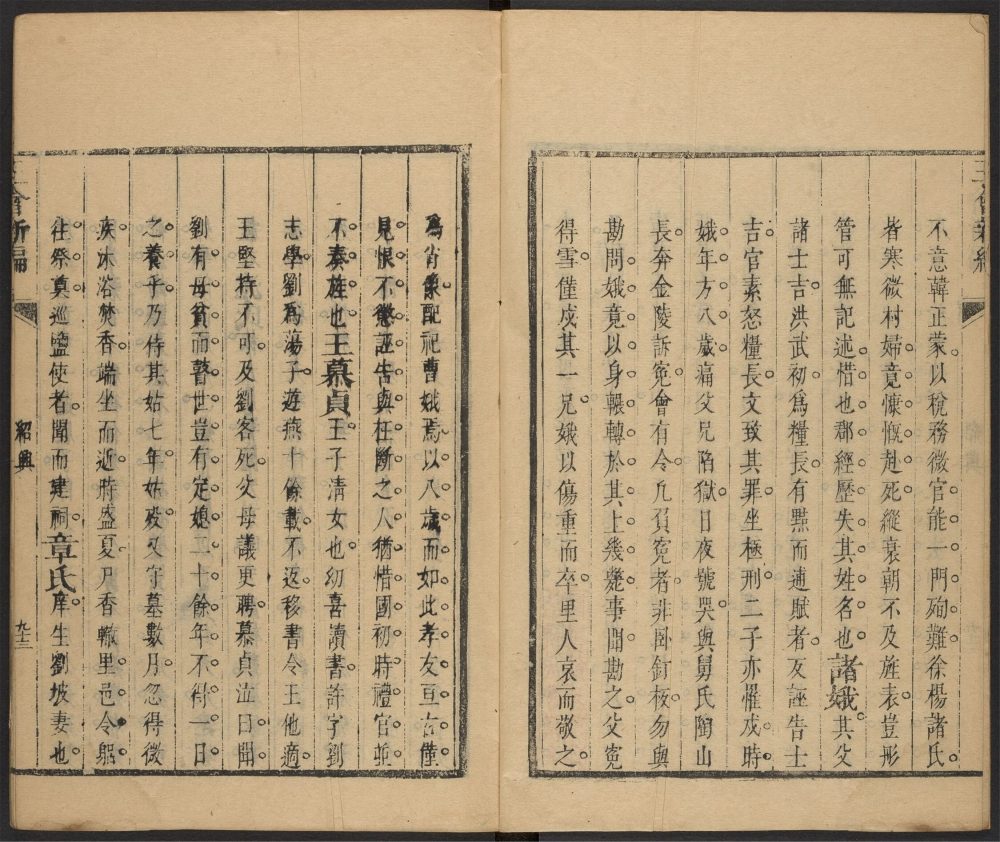 不意韓正蒙以稅務微官能一門殉難徐楊諸氏
皆寒微村婦竟慷慨赴死縱衰朝不及旌表豈形
管可無記述惜也郡經歷失其姓名也諸娥其父
諸士吉洪武初爲糧長有黠而逋賦者反誣告士
吉官素怒糧長文致其罪坐極刑二子亦罹戍時
娥年方八歲痛父兄陷獄日夜號哭與舅氏陶山
長奔金陵訴寃會有令凡負寃者非臥釘板勿與
勘問娥竟以身輾轉於其上幾斃事聞勘之父寃
得雪僅戍其一兄娥以傷重而卒里人哀而敬之
爲肖像配祀曹娥焉以八歲而如此孝友亘古僅
見恨不懲誣告與枉斷之人猶惜國初時禮官並
不奏旌也王慕貞王子清女也幼喜讀書許字劉
志學劉爲蕩子遊燕十餘載不返移書令王他適
王堅持不可及劉客死父母議更聘慕貞泣曰聞
劉有母貧而瞽世豈有定媳二十餘年不得一日
之養乎乃侍其姑七年姑歿又守墓數月忽得微
疾沐浴焚香端坐而逝時盛夏尸香徹里邑令躬
往祭奠巡鹽使者聞而建祠章氏庠生劉坡妻也
紹興
九十三